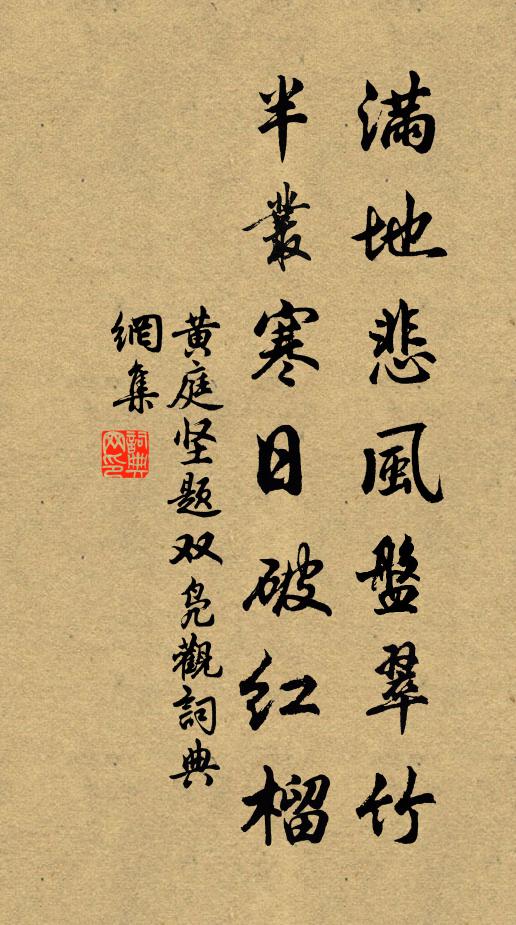 滿地悲風盤翠竹
半叢寒日破紅榴
黄庭坚题双凫觀詞典
網集
詞典
网印